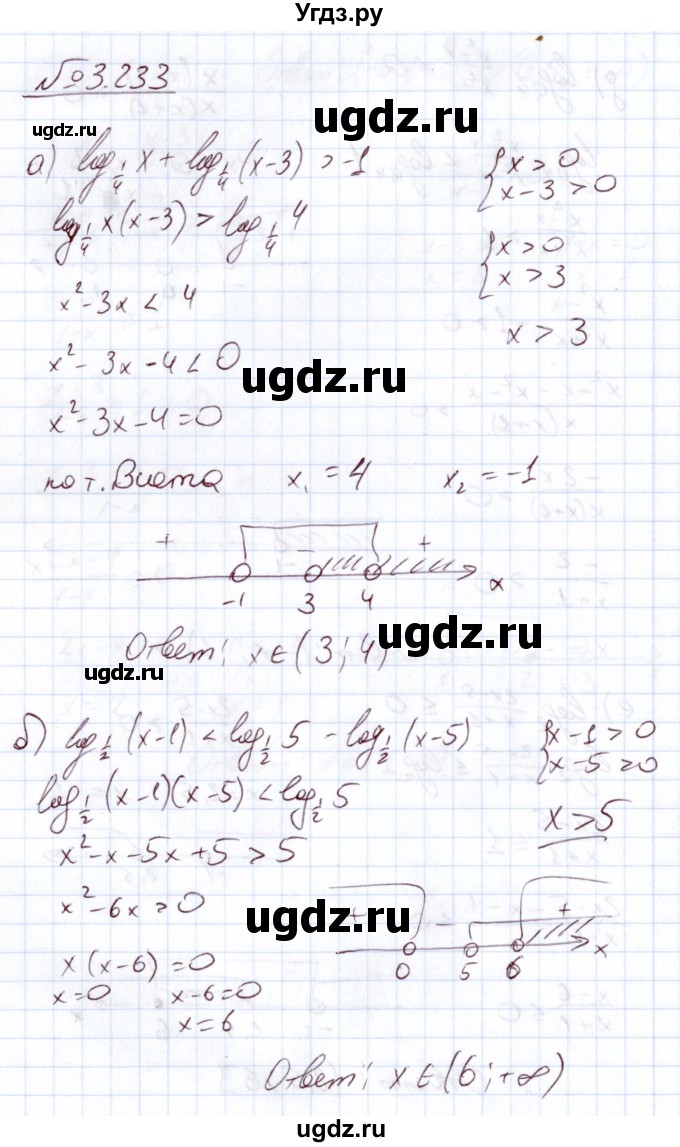 Угдз.ру
№3.233
ugdz.ru
а) log_{1/4} x + log_{1/4} (x-3) > -1 { x > 0
x - 3 > 0
log_{1/4} x(x-3) > log_{1/4} 4 ugdz.ru { x > 0
x > 3
x² - 3x < 4
x > 3
x² - 3x - 4 < 0
ugdz.ru
x² - 3x - 4 = 0
по т. Виета x₁ = 4 x₂ = -1
ugdz.ru
+ - + x
-1 3 4
Ответ: x ∈ (3; 4)
ugdz.ru
ugdz.ru
б) log_{1/2} (x-1) < log_{1/2} 5 - log_{1/2} (x-5) { x - 1 > 0
x - 5 > 0
log_{1/2} (x-1)(x-5) < log_{1/2} 5
ugdz.ru
x > 5
x² - x - 5x + 5 > 5
x² - 6x > 0
ugdz.ru
+ - + x
0 5 6
x(x-6) = 0
ugdz.ru
x = 0 x - 6 = 0
x = 6
ugdz.ru
Ответ: x ∈ (6; +∞)
ugdz.ru